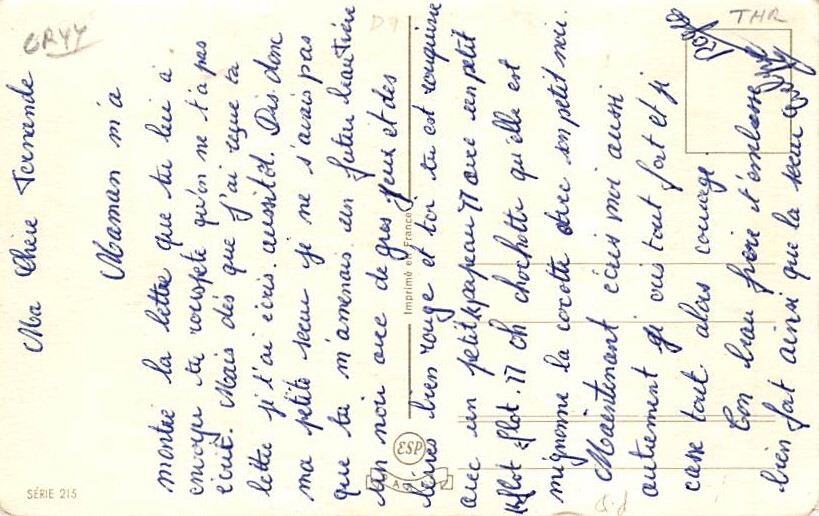 Ma Chère Fernande
Maman m'a
montré la lettre que tu lui a
envoyé tu rouspete qu'on ne t'a pas
écrit. Mais dès que j'ai reçue ta
lettre je t'ai écris aussitôt. Dis donc
ma petite sœur je ne s'avais pas
que tu m'amenais un futur beau frère
noir avec de gros yeux et des
lèvres bien rouge et toi tu est rouquine
avec un petit papeau !! avec un petit
flot flot. !! oh chochotte qu'elle est
mignonne la cocotte avec son petit noir.
Maintenant écris moi aussi
autrement je cris tout fort et je
casse tout alors courage.
Ton beau frère t'embrasse
bien fort ainsi que ta sœur
GRYY
THR
Imprimé en France
ESP
SÉRIE 215